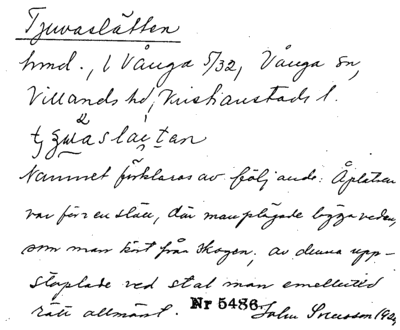 Tjuvaslätten
hmd., 1 Vånga 5/32, Vånga sn,
Villands hd, Kristianstads l.
Namnet förklaras av följande: Å platsen
var förr en slätt, där man plägade lägga veden,
som man kört från skogen; av denna upp-
staplade ved stal man emellertid
rätt allmänt. Nr 5486 John Svensson